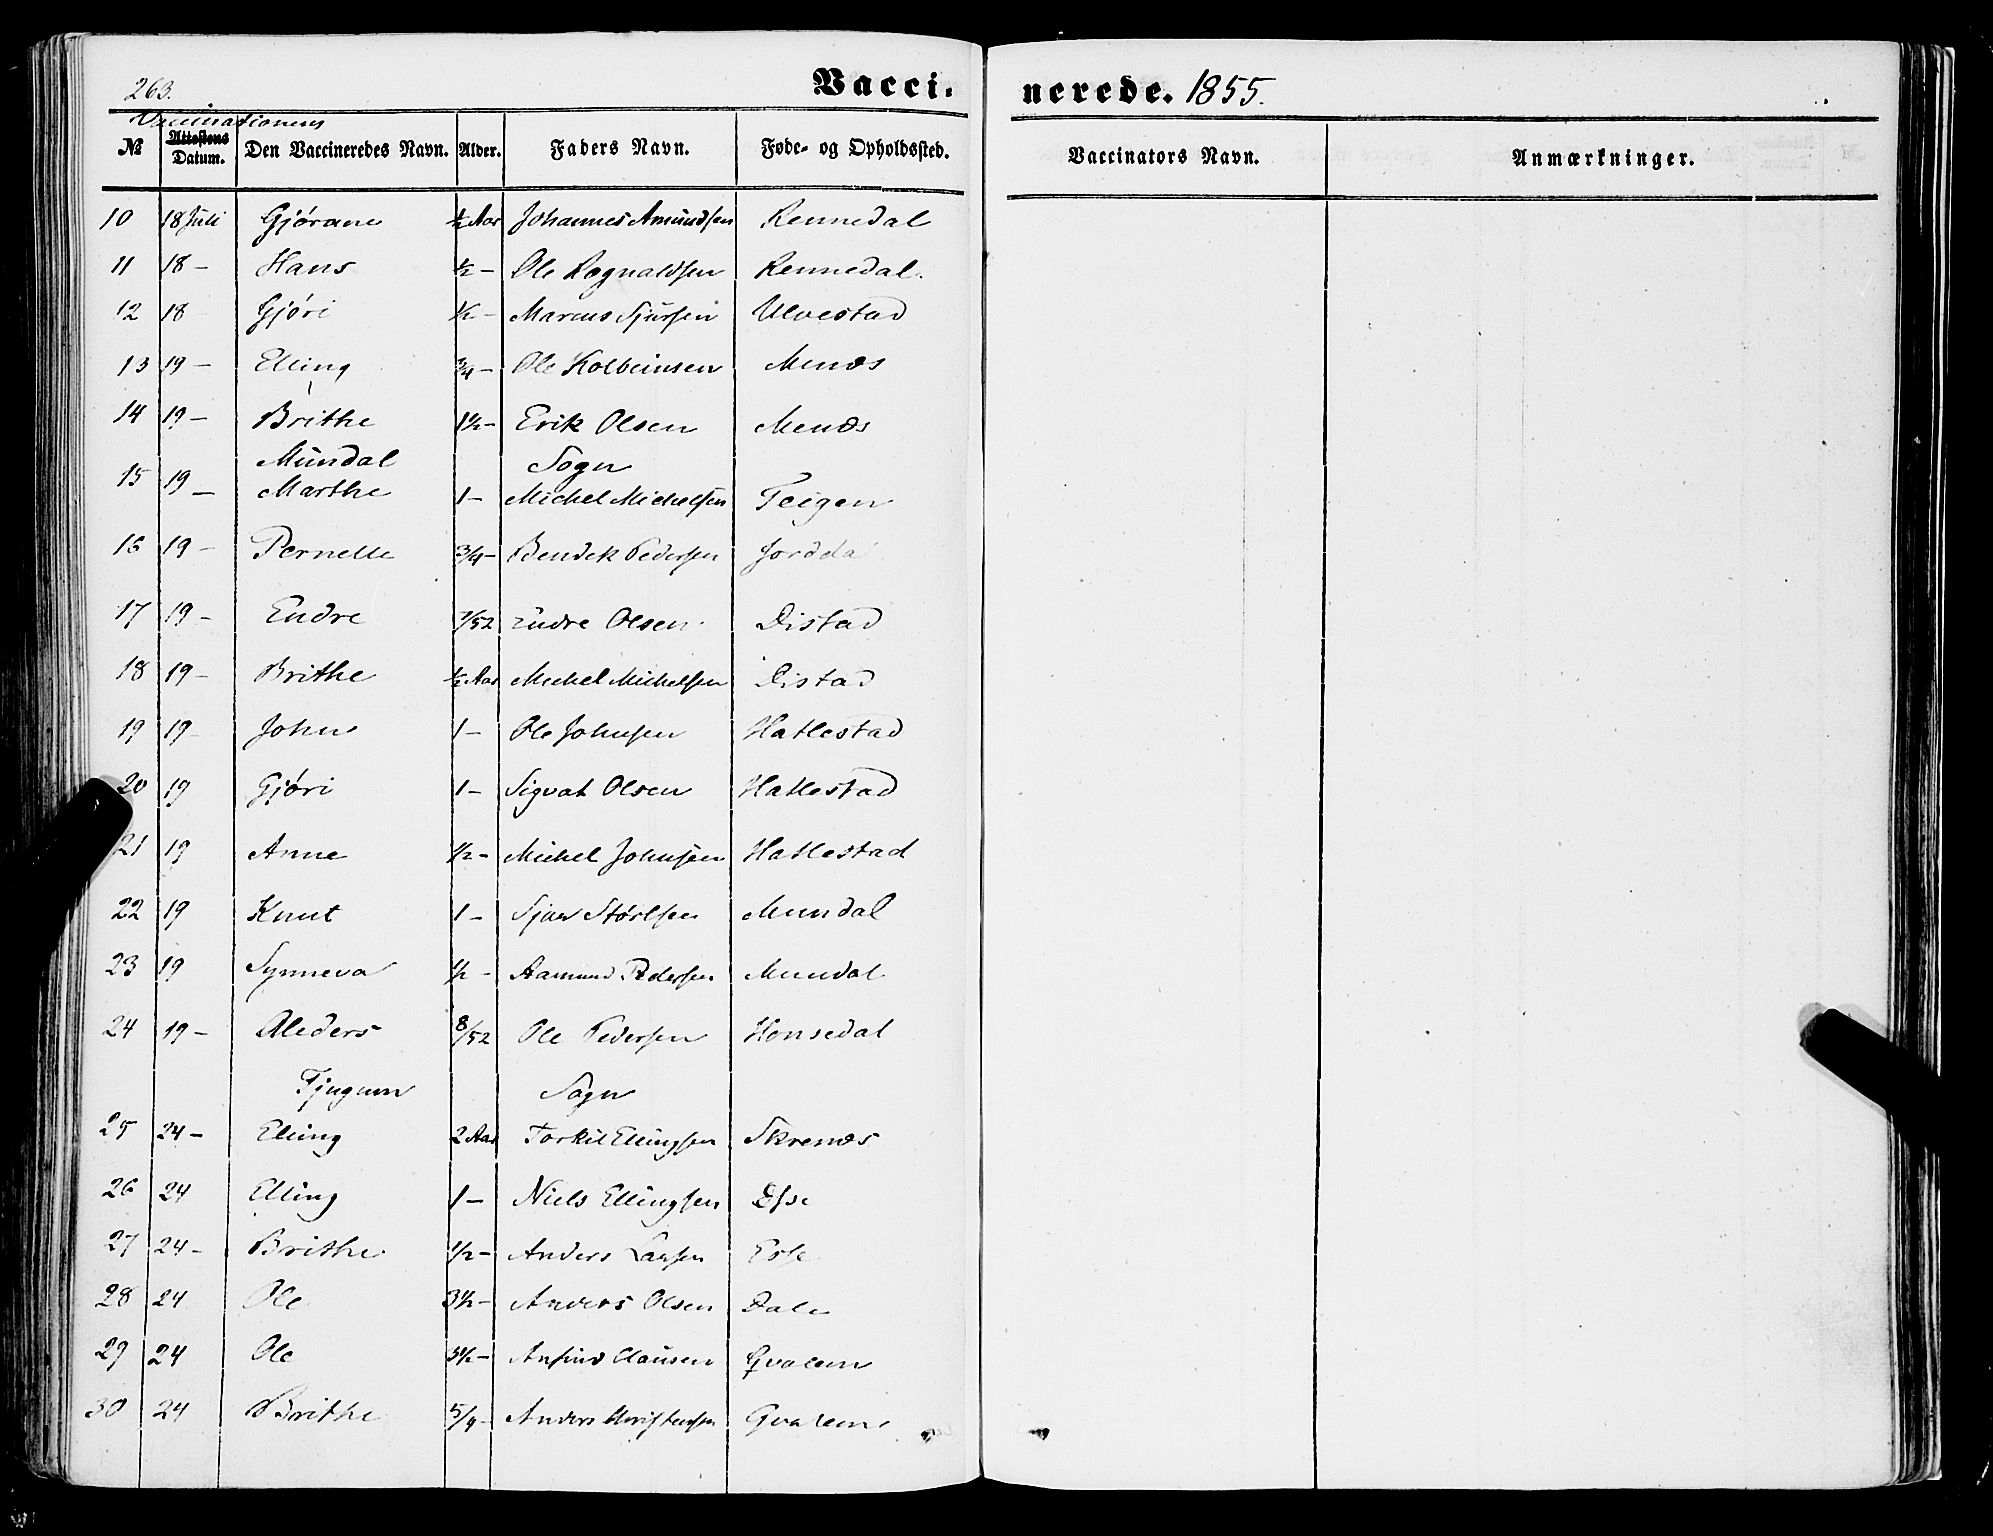 263.
Vacci-
nerede. 1855.
Vaccinationens
№ Attestens Datum. Den Vaccineredes Navn. Alder. Faders Navn. Føde- og Opholdssted. Vaccinators Navn. Anmærkninger.
10 18 Juli Gjørane ½ Aar Johannes Amundsen Rennedal
11 18 – Hans ½ – Ole Rognaldsen Rennedal.
12 18 Gjøri ½ – Marcus Sjursen Ulvestad
13 19 – Elling ¾ – Ole Kolbeinsen Menæs
14 19 – Brithe 1½ – Erik Olsen Menæs
Mundal Sogn
15 19 – Marthe 1 – Michel Michelsen Teigen
16 19 – Pernelle ¾ – Bendik Pedersen
17 19 – Endre 7/52 Endre Olsen. Distad
18 19 – Brithe ½ Aar Michel Michelsen Distad
19 19 John 1 – Ole Johnsen Hatlestad
20 19 Gjøri 1 – Sigvat Olsen Hatlestad
21 19 Anne ½ – Michel Johnsen Hatlestad
22 19 Knut 1 – Mundal
23 19 Synneva ½ – Aamund Pedersen Mundal
24 19 – 8/52 Ole Pedersen
Tjugum Sogn
25 24 – Elling 2 Aar Torkil Ellingsen Skrenæs
26 24 Elling 1 – Niels Ellingsen Esse
27 24 – Brithe ½ – Anders Larsen Esse
28 24 Ole 3½ – Anders Olsen Dale
29 24 Ole 3½ – Anfind Clausen Qvalem
30 24 Brithe 5/4 – Anders Christensen Qvalem